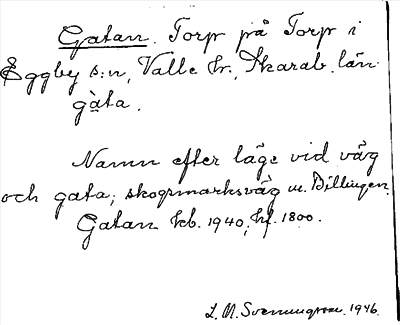 Gatan. Torp på Torp i
Eggby s:n, Valle hr., Skarab. län
gàta.
Namn efter läge vid väg
och gata; skogsmarksväg m. Billingen.
Gatan kb. 1940, hf. 1800.
L. M. Svenungsson. 1946.